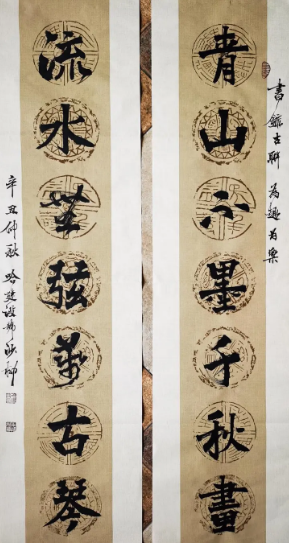 書錄古聯 為趣為樂
青山不墨千秋畫
流水無弦萬古琴
辛丑仲秋 哈建設